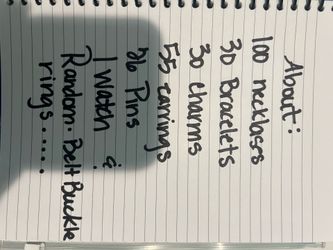 About:
100 necklases
30 Bracelets
30 charms
55 earrings
26 Pins
1 Watch &
Random. Belt Buckle
rings......